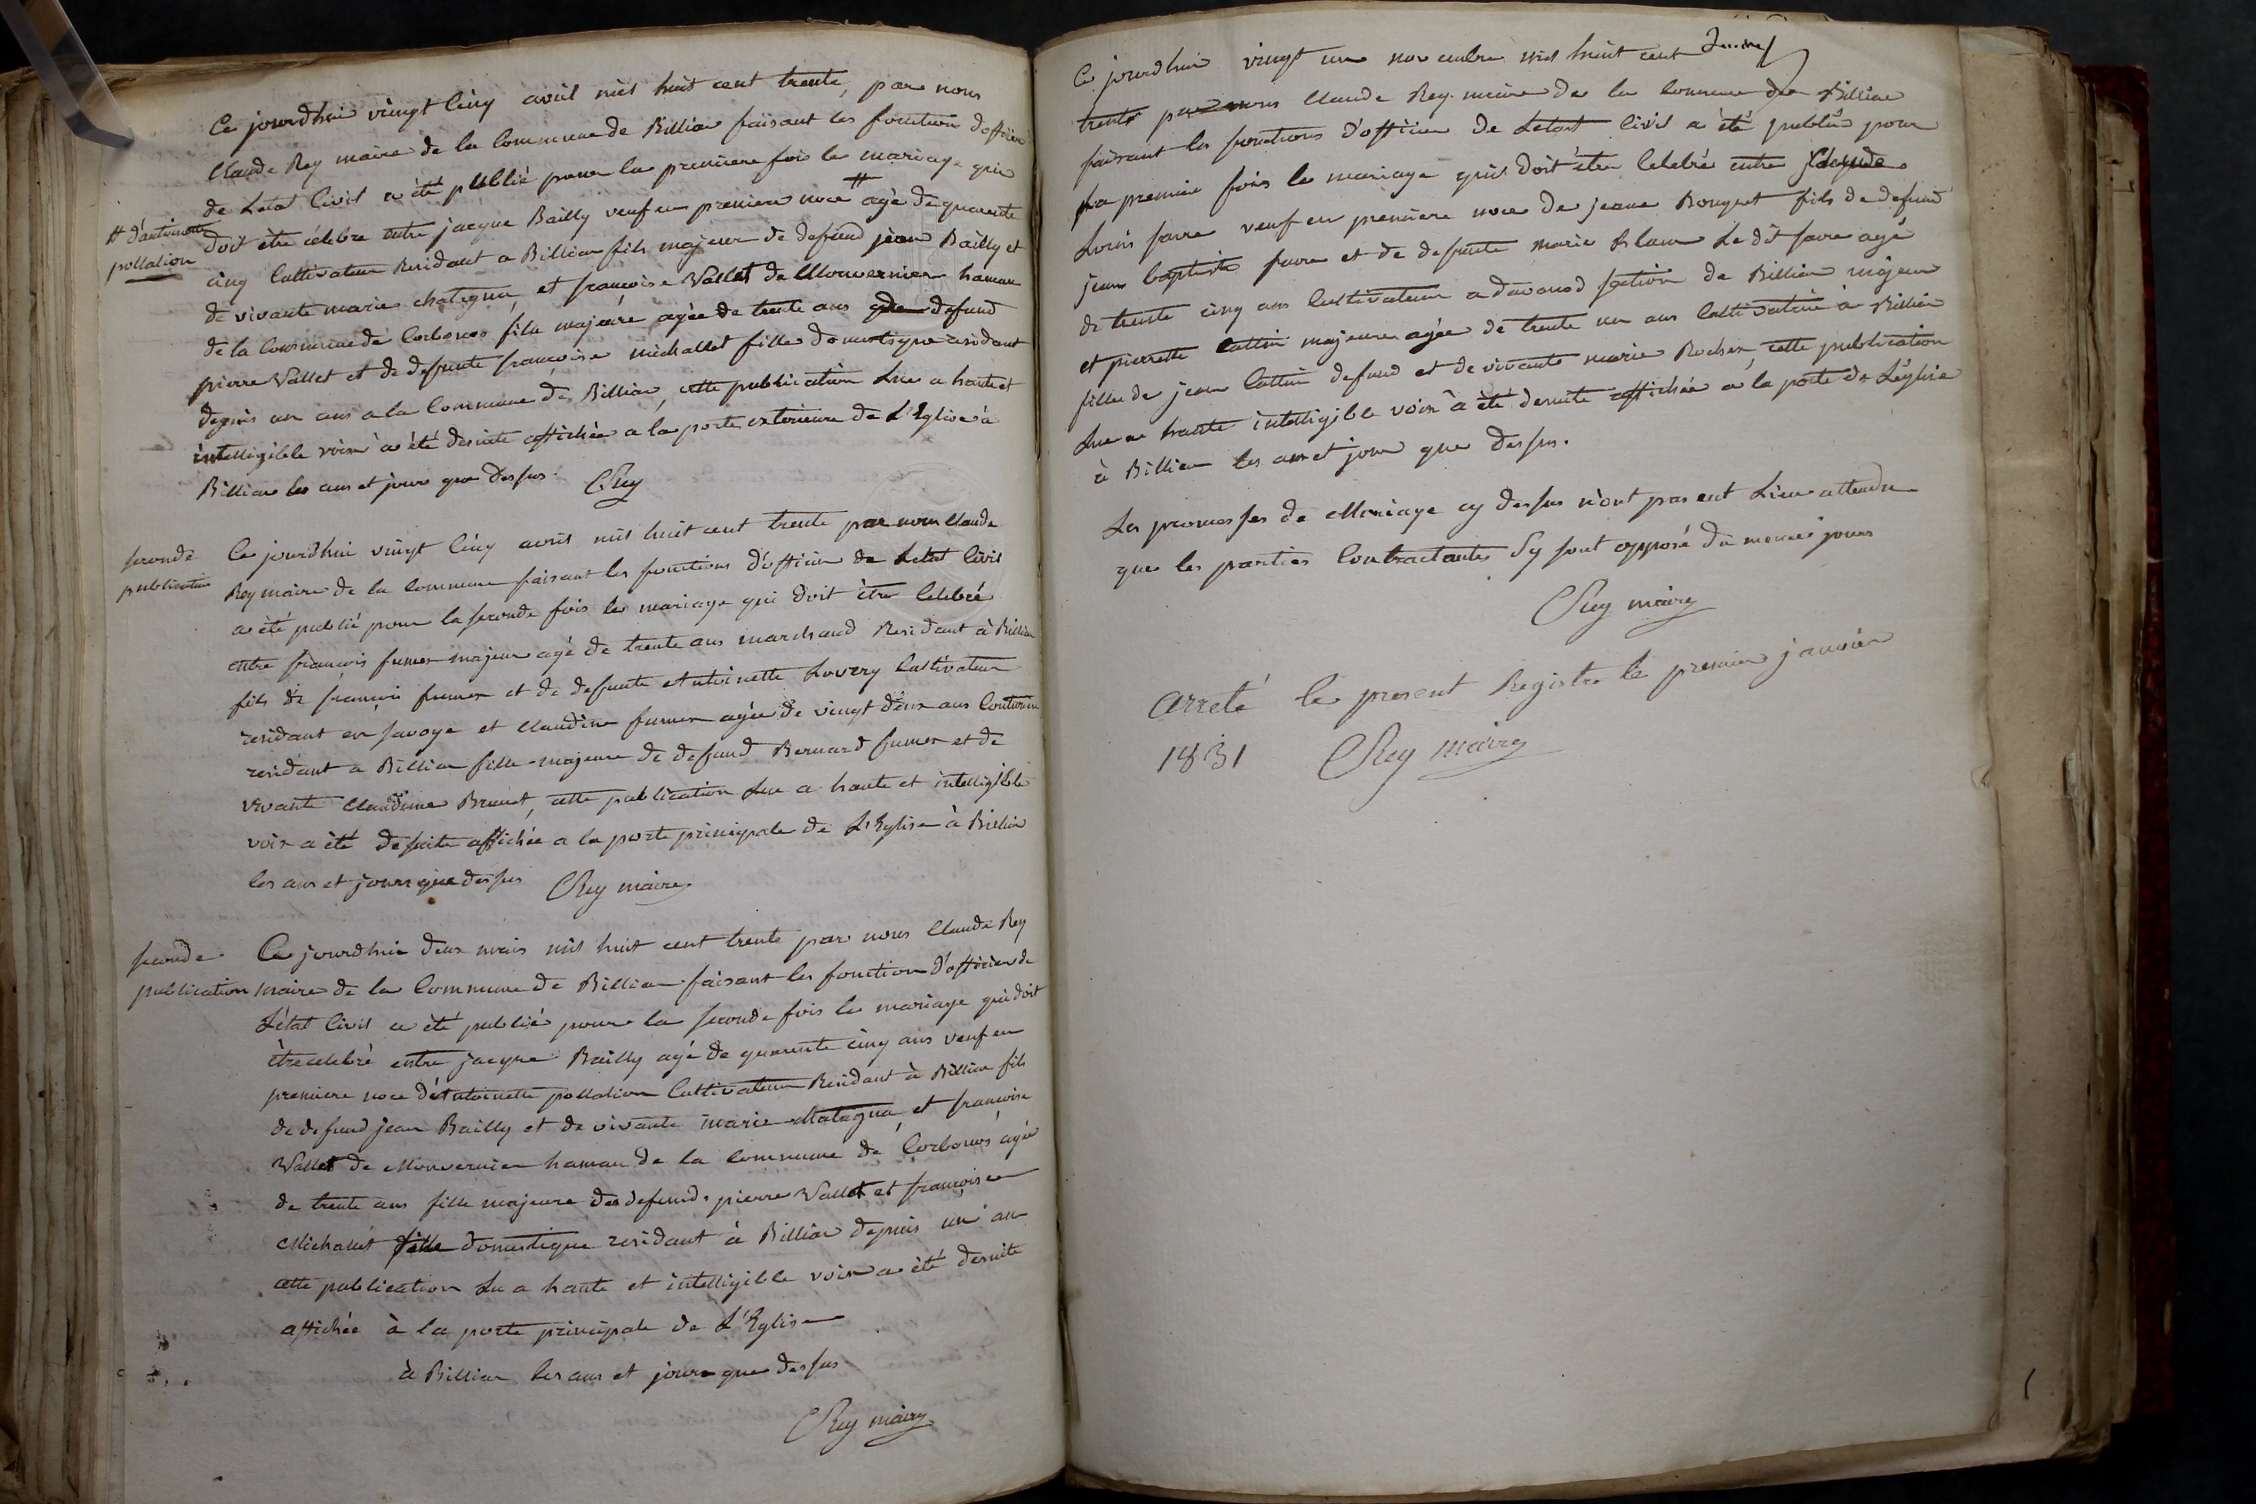 Ce jourdhui vingt cinq avril mil huit cent trente, par nous
Claude Rey maire de la Commune de Billiat faisant les fonction dofficier
de Letat Civil a été publié pour la premiere fois le mariage qui
# d'antoinette
pollation
doit être célébre entre jacque Bailly veuf en premiere noce # agé de quarente
cinq Cultivateur Residant a Billiat fils majeur de defund jean Bailly et
de vivante marie chatagna, et francoise Vallet de Monvernier hamau
de la Commune de Corbonos fille majeure agée de trente ans de defund
pierre Vallet et de defunte francoise michallet fille domestique residant
depuis un ans a la Commune de Billiat, cette publication Lue a haute et
intelligible voix a été desuite affichée a la porte exterieure de L'Eglise à
Billiat les ans et jours que dessus. CRey
seconde
publication
Ce jourdhui vingt cinq avril mil huit cent trente par nous Claude
Rey maire de la commune faisant les fonctions d'officier de Letat Civil
a été publié pour la seconde fois le mariage qui doit être Celebré
entre francois fumex majeur agé de trente ans marchand Residant à Billiat
fils de francois fumex et de defunte Antoinette Lovery Cultivateur
residant en Savoye et Claudine fumex agée de vingt deux ans Couturiere
residant a Billiat fille majeure de defund Bernard fumex et de
vivante Claudine Brunet, cette publication Lue a haute et intelligible
voix a été desuite affichée a la porte principale de L'Eglise à Billiat
les ans et jours que dessus CRey maire
seconde
publication
Ce jourdhui deux mais mil huit cent trente par nous Claude Rey
maire de la Commune de Billiat faisant les fonction d'officier de
L'état Civil a été publié pour la seconde fois le mariage qui doit
être celebré entre jacque Bailly agé de quarente cinq ans veuf en
premiere noce d'Antoinette pollation Cultivateur Residant à Billiat fils
de defund jean Bailly et de vivante marie Matagna, et francoise
Vallet de Monvernier hamau de la Commune de Corbonos agée
de trente ans fille majeure de defund pierre Vallet et francoise
Michallet fille domestique residant à Billiat depuis un an
cette publication Lu a haute et intelligible voix a été desuite
affichée à la porte principale de L'Eglise
à Billiat les ans et jours que dessus
CRey maire
Ce jourdhui vingt un novembre mil huit cent
trente par nous Claude Rey maire de la Commune de Billiat
faisant les fonctions d'officier de Letat Civil a été publié pour
la premiere fois le mariage qui doit être Celebré entre
Louis favre veuf en premiere noce de jeanne Bouquet fils de defund
jean baptiste favre et de defunte marie Blanc Le dit favre agé
de trente cinq ans Cultivateur a davanod section de Billiat majeur
et pierrette Cattin majeure agée de trente un ans Cultivatrice à Billiat
fille de jean Cattin defund et de vivante marie Rochex, cette publication
Lue a haute intelligible voix a été desuite affichée a la porte de L'église
à Billiat les ans et jour que dessus.
Les promesses de Mariage cy dessus n'ont pas eut Lieu attendu
que les parties Contractantes Sy sont opposé du meme jour
CRey maire
Arreté le present Registre le premier janvier
1831 CRey maire